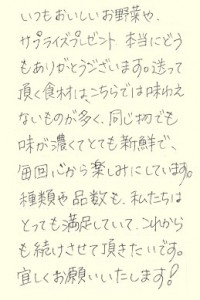 いつもおいしいお野菜や、
サプライズプレゼント 本当にどう
もありがとうございます。送って
頂く食材は、こちらでは味わえ
ないものが多く、同じ物でも
味が濃くてとても新鮮で、
毎回心から楽しみにしています。
種類や品数も、私たちは
とっても満足していて、これから
も続けさせて頂きたいです。
宜しくお願いいたします!